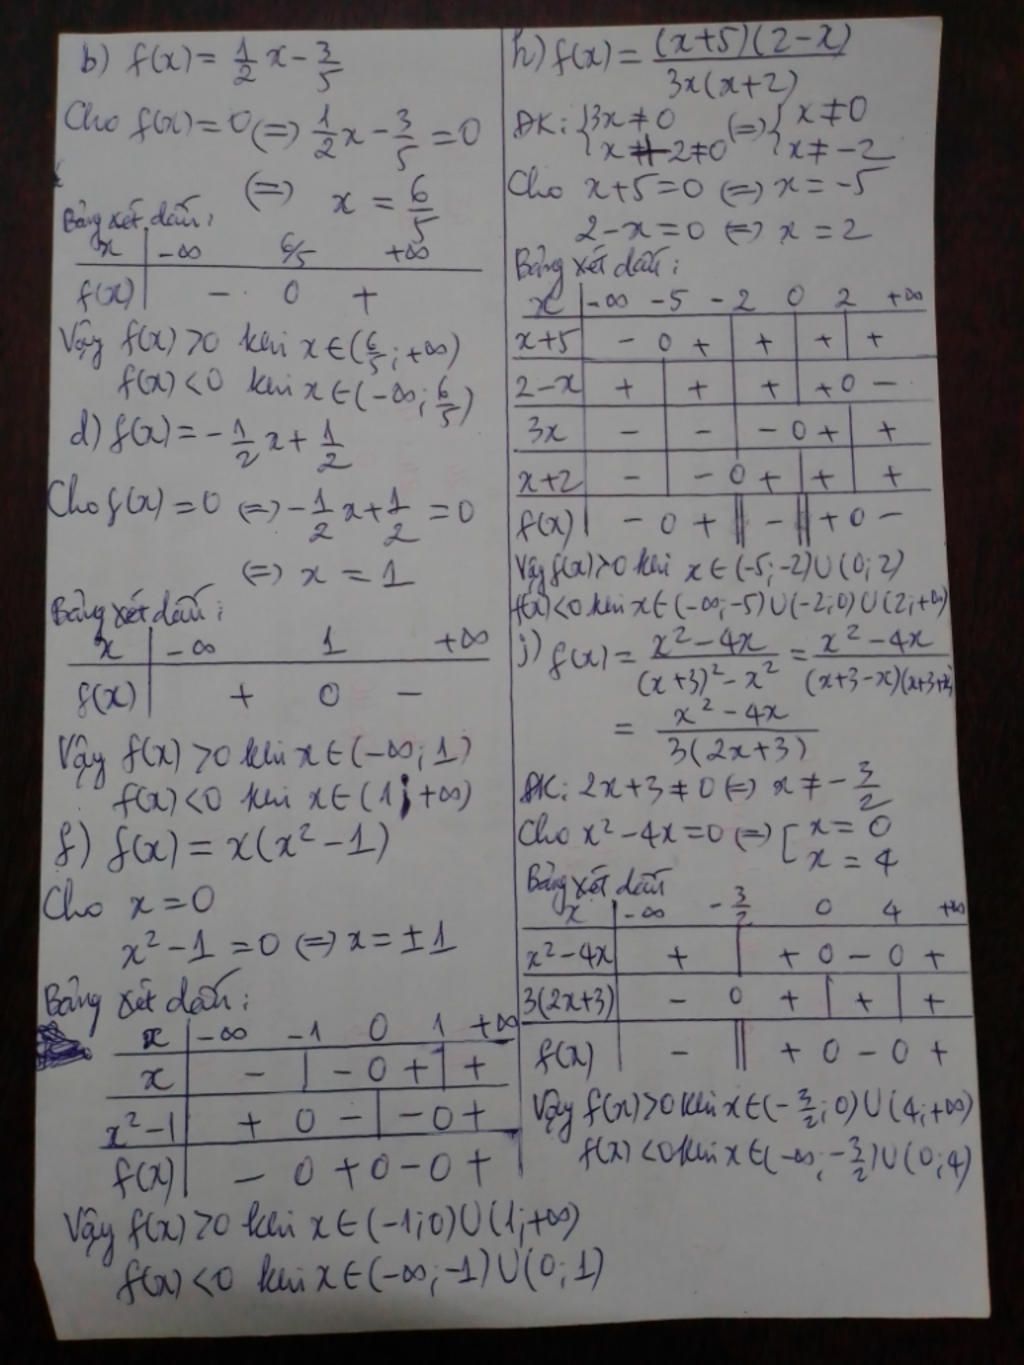 b) f(x) = 1/2 x - 3/5
Cho f(x) = 0 (=) 1/2 x - 3/5 = 0
(=) x = 6/5
Bảng xét dấu:
x | -∞ 6/5 +∞
f(x) | - 0 +
Vậy f(x) > 0 khi x ∈ (6/5; +∞)
f(x) < 0 khi x ∈ (-∞; 6/5)
d) f(x) = -1/2 x + 1/2
Cho f(x) = 0 (=) -1/2 x + 1/2 = 0
(=) x = 1
Bảng xét dấu:
x | -∞ 1 +∞
f(x) | + 0 -
Vậy f(x) > 0 khi x ∈ (-∞; 1)
f(x) < 0 khi x ∈ (1; +∞)
f) f(x) = x(x² - 1)
Cho x = 0
x² - 1 = 0 (=) x = ±1
Bảng xét dấu:
x | -∞ -1 0 1 +∞
x | - | - 0 + | +
x² - 1 | + 0 - | - 0 +
f(x) | - 0 + 0 - 0 +
Vậy f(x) > 0 khi x ∈ (-1; 0) ∪ (1; +∞)
f(x) < 0 khi x ∈ (-∞; -1) ∪ (0; 1)
h) f(x) = (x+5)(2-x) / 3x(x+2)
ĐK: { 3x ≠ 0 (=) { x ≠ 0
x + 2 ≠ 0 x ≠ -2
Cho x + 5 = 0 (=) x = -5
2 - x = 0 (=) x = 2
Bảng xét dấu:
x | -∞ -5 -2 0 2 +∞
x+5 | - 0 + | + | + | +
2-x | + | + | + | + 0 -
3x | - | - | - 0 + | +
x+2 | - | - 0 + | + | +
f(x) | - 0 + || - || + 0 -
Vậy f(x) > 0 khi x ∈ (-5; -2) ∪ (0; 2)
f(x) < 0 khi x ∈ (-∞; -5) ∪ (-2; 0) ∪ (2; +∞)
j) f(x) = x² - 4x / (x+3)² - x² = x² - 4x / (x+3-x)(x+3+x)
= x² - 4x / 3(2x+3)
ĐK: 2x + 3 ≠ 0 (=) x ≠ -3/2
Cho x² - 4x = 0 (=) [ x = 0
x = 4
Bảng xét dấu
x | -∞ -3/2 0 4 +∞
x² - 4x | + | + 0 - 0 +
3(2x+3) | - 0 + | + | +
f(x) | - || + 0 - 0 +
Vậy f(x) > 0 khi x ∈ (-3/2; 0) ∪ (4; +∞)
f(x) < 0 khi x ∈ (-∞; -3/2) ∪ (0; 4)